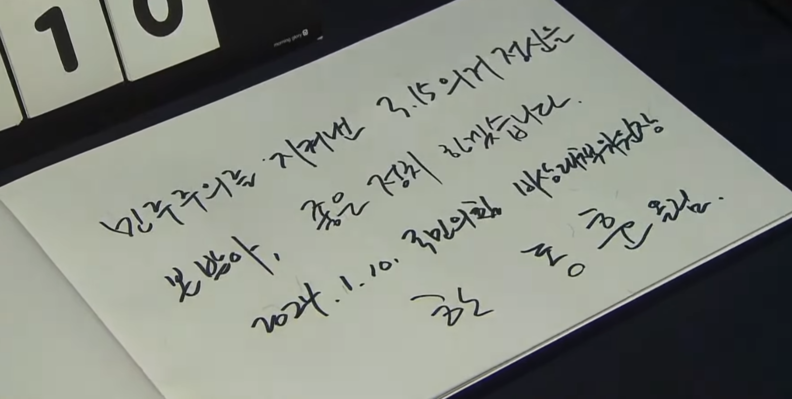 1 0
민주주의를 지켜낸 3.15의거 정신을
본받아, 좋은 정치 하겠습니다.
2024. 1. 10. 국민의힘 비상대책위원장
한 동 훈 올림.